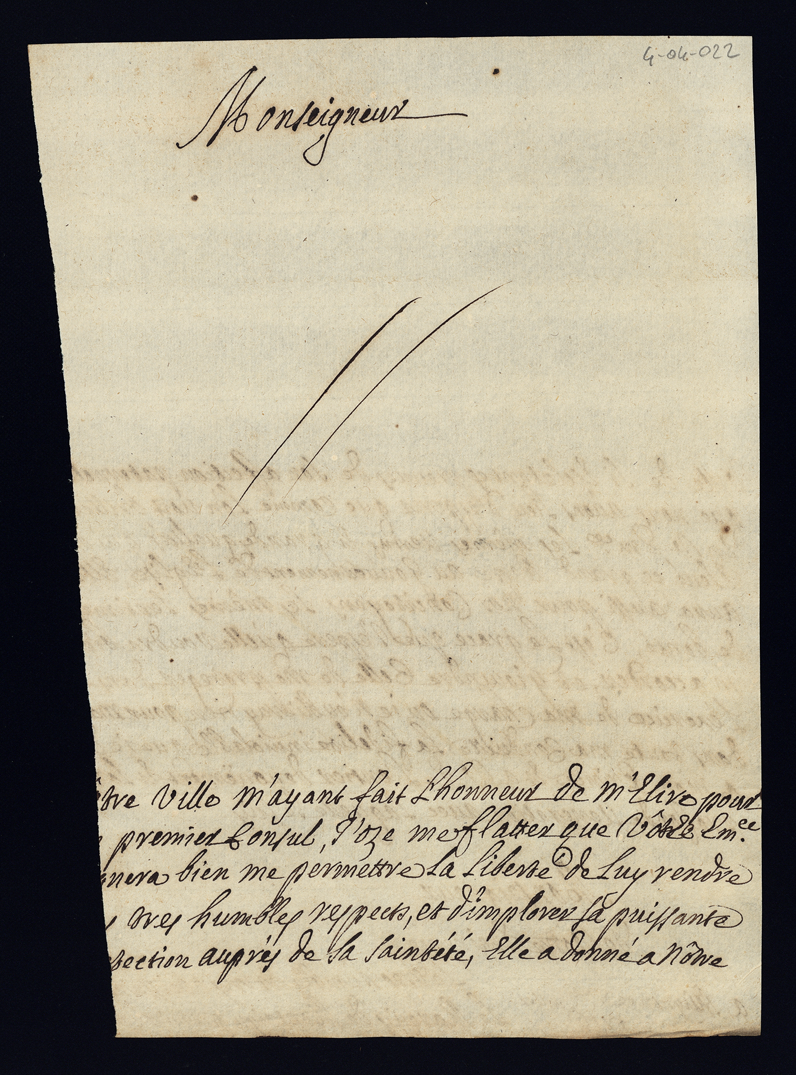 4-04-022
Monseigneur
tre Ville m'ayant fait L'honneur de m'Elire pour
premier Consul, J'oze me flatter que Vôtre Em.ce
nera bien me permettre La Liberté de Luy rendre
tres humbles respects, et d'implorer sa puissante
tection auprés de Sa Sainteté, Elle a donné a Nôtre